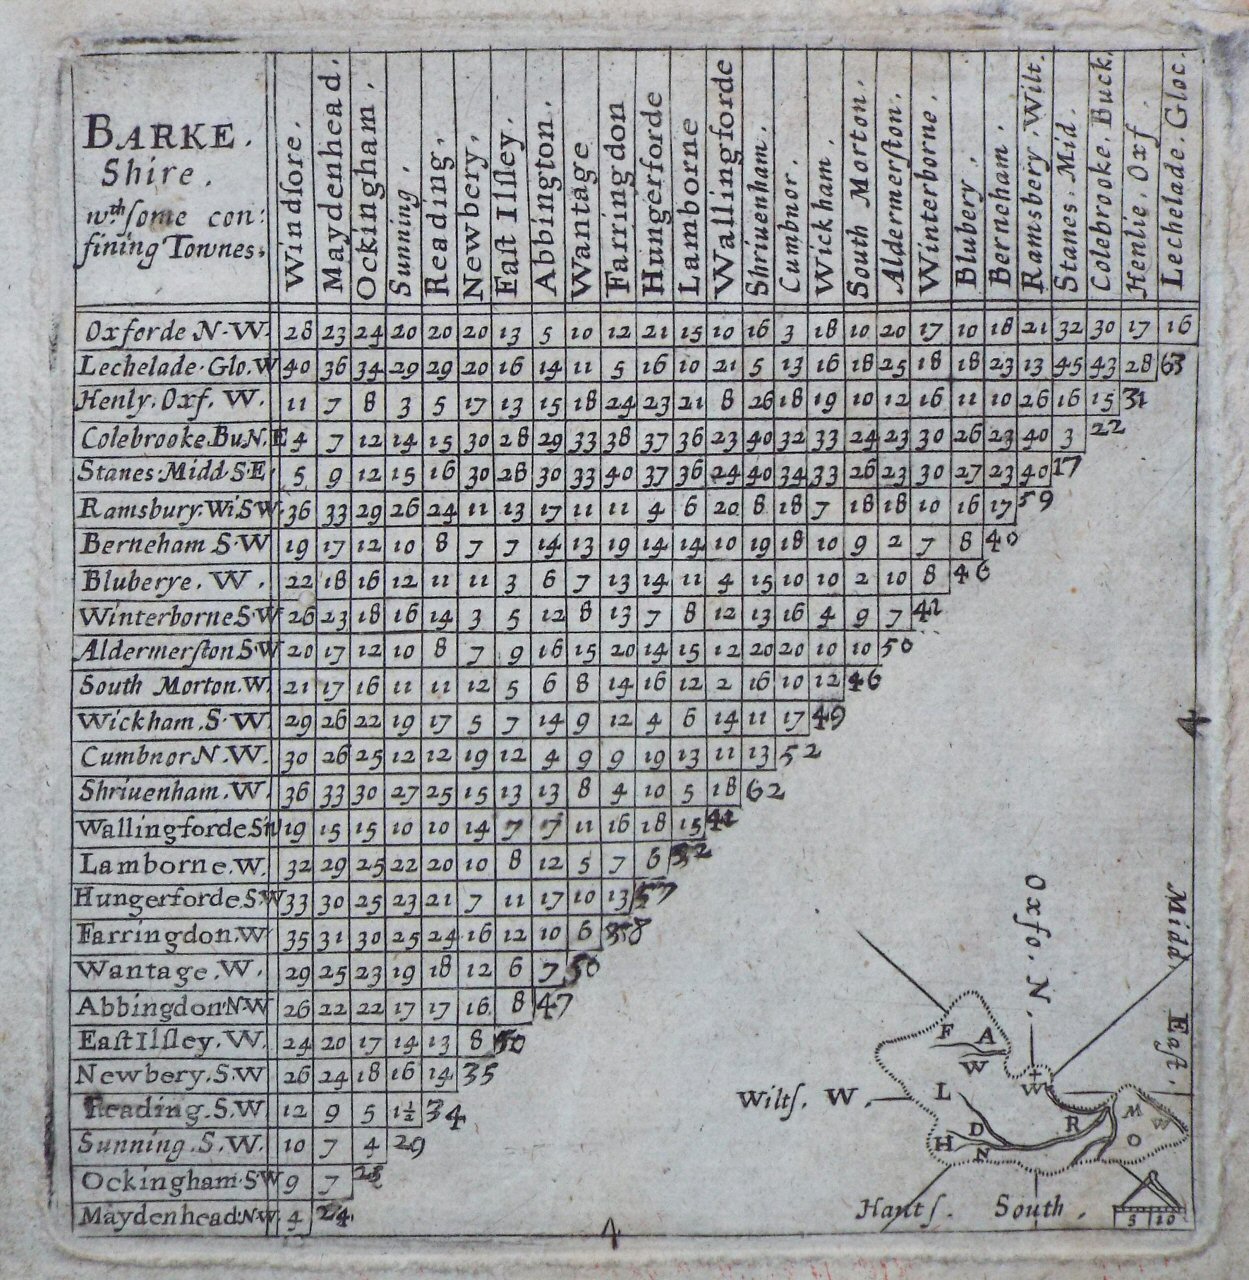 BARKE.
Shire.
wth ſome con:
fining Townes.
Windſore.
Maydenhead.
Ockingham.
Sunning.
Reading.
Newbery.
Eaſt Ilſley.
Abbington.
Wantage
Farringdon
Hungerforde
Lamborne
Wallingforde
Shriuenham.
Cumbnor.
Wickham.
South Morton.
Aldermerſton.
Winterborne.
Blubery.
Berneham.
Ramsbery. Wilt.
Stanes. Mid.
Colebrooke. Buck.
Henlie. Oxf
Lechelade. Gloc.
Oxforde N.W. 28 23 24 20 20 20 13 5 10 12 21 15 10 16 3 18 10 20 17 10 18 21 32 30 17 16
Lechelade. Glo. W 40 36 34 29 29 20 16 14 11 5 16 10 21 5 13 16 18 25 18 18 23 13 45 43 28 63
Henly. Oxf. W. 11 7 8 3 5 17 13 15 18 24 23 21 8 26 18 19 10 12 16 11 10 26 16 15 31
Colebrooke. Bu. N. E 4 7 12 14 15 30 28 29 33 38 37 36 23 40 32 33 24 23 30 26 23 40 3 22
Stanes Midd S.E 5 9 12 15 16 30 28 30 33 40 37 36 24 40 34 33 26 23 30 27 23 40 17
Ramsbury. Wi S W. 36 33 29 26 24 11 13 17 11 11 4 6 20 8 18 7 18 18 10 16 17 59
Berneham S.W 19 17 12 10 8 7 7 14 13 19 14 14 10 19 18 10 9 2 7 8 40
Bluberye. W. 22 18 16 12 11 11 3 6 7 13 14 11 4 15 10 10 2 10 8 46
Winterborne S.W 26 23 18 16 14 3 5 12 8 13 7 8 12 13 16 4 9 7 41
Aldermerſton S.W 20 17 12 10 8 7 9 16 15 20 14 15 12 20 20 10 10 50
South Morton. W. 21 17 16 11 11 12 5 6 8 14 16 12 2 16 10 12 46
Wickham. S.W. 29 26 22 19 17 5 7 14 9 12 4 6 14 11 17 49
Cumbnor N.W. 30 26 25 12 12 19 12 4 9 9 19 13 11 13 52
Shriuenham. W. 36 33 30 27 25 15 13 13 8 4 10 5 18 62
Wallingforde SW 19 15 15 10 10 14 7 7 11 16 18 15
Lamborne. W. 32 29 25 22 20 10 8 12 5 7 6
Hungerforde. S. W 33 30 25 23 21 7 11 17 10 13 57
Farringdon. W 35 31 30 25 24 16 12 10 6
Wantage. W. 29 25 23 19 18 12 6 7 50
Abbingdon N W 26 22 22 17 17 16 8 47
Eaſt Ilſley. W. 24 20 17 14 13 8 50
Newbery. S. W 26 24 18 16 14 35
Reading. S. W 12 9 5 1½ 34
Sunning. S. W. 10 7 4 29
Ockingham. S W 9 7
Maydenhead. N W. 4 24
4
4
Oxfo. N.
Midd
Eaſt.
Wiltſ. W.
Hantſ. South.
F A
W
W
L
M
W
D R
H
N
O
5 10